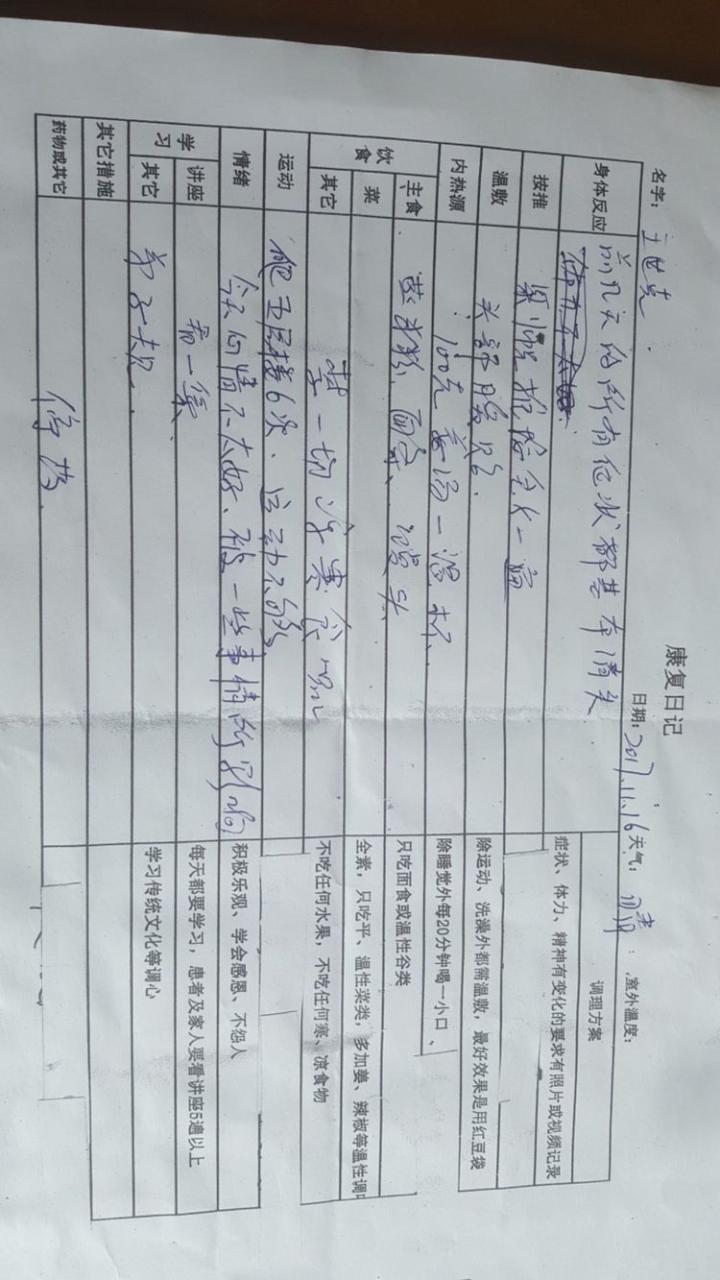 康复日记
名字：王世克 日期：2017.11.16 天气：晴 室外温度：
调理方案
身体反应 前几天的所有症状都基本消失
症状、体力、精神有变化的要求有照片或视频记录
按推 全头一遍
温敷 头部 腹
除运动、洗澡外都需温敷，最好效果是用红豆袋
内热源 100克姜汤一温杯、
除睡觉外每20分钟喝一小口、
饮食
主食 面食、馒头
只吃面食或温性谷类
菜
全素，只吃平、温性菜类，多加姜、辣椒等温性调
其它 禁一切水果
不吃任何水果，不吃任何寒、凉食物
运动 爬五层楼6次、运动不够
情绪 今天心情不太好、被一些事情所影响
积极乐观、学会感恩、不怨人
学习
讲座 看一集
每天都要学习，患者及家人要看讲座5遍以上
其它 弟子规、
学习传统文化等调心
其它措施
药物或其它 停药、